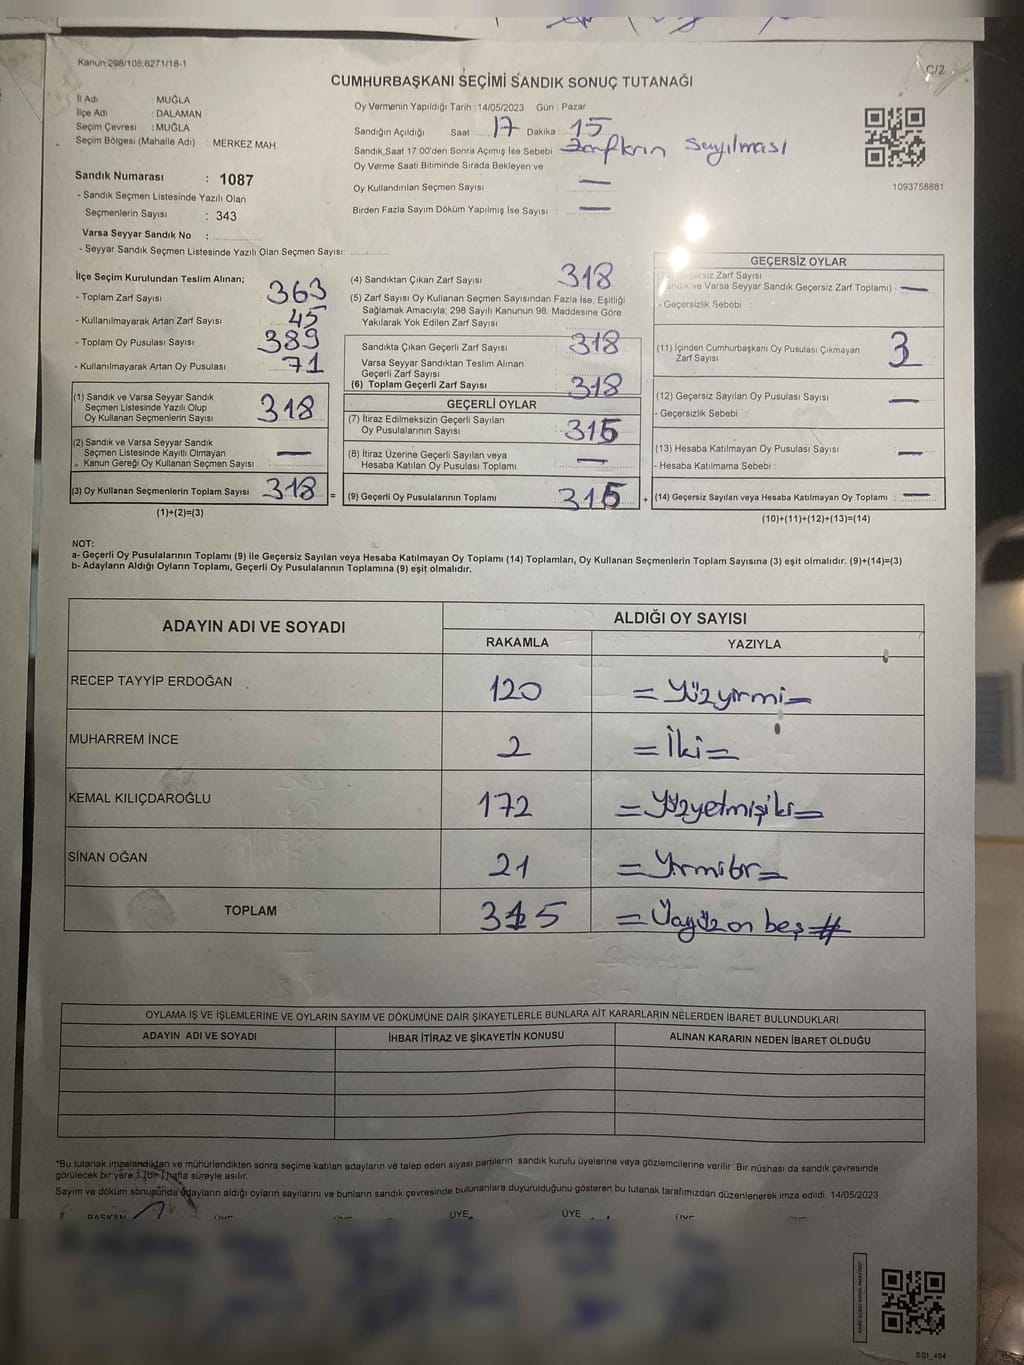 Kanun:298/105,6271/18-1
C/2
CUMHURBAŞKANI SEÇİMİ SANDIK SONUÇ TUTANAĞI
İl Adı : MUĞLA
İlçe Adı : DALAMAN
Seçim Çevresi : MUĞLA
Seçim Bölgesi (Mahalle Adı) : MERKEZ MAH.
Sandık Numarası : 1087
- Sandık Seçmen Listesinde Yazılı Olan
Seçmenlerin Sayısı : 343
Varsa Seyyar Sandık No :
- Seyyar Sandık Seçmen Listesinde Yazılı Olan Seçmen Sayısı:
Oy Vermenin Yapıldığı Tarih : 14/05/2023 Gün : Pazar
Sandığın Açıldığı Saat : 17 Dakika : 15
Sandık Saat 17:00'den Sonra Açımış İse Sebebi : Zarfların sayılması
Oy Verme Saati Bitiminde Sırada Bekleyen ve
Oy Kullandırılan Seçmen Sayısı : —
Birden Fazla Sayım Döküm Yapılmış İse Sayısı : —
1093758881
İlçe Seçim Kurulundan Teslim Alınan;
- Toplam Zarf Sayısı : 363
- Kullanılmayarak Artan Zarf Sayısı : 45
- Toplam Oy Pusulası Sayısı : 389
- Kullanılmayarak Artan Oy Pusulası : 71
(1) Sandık ve Varsa Seyyar Sandık
Seçmen Listesinde Yazılı Olup
Oy Kullanan Seçmenlerin Sayısı : 318
(2) Sandık ve Varsa Seyyar Sandık
Seçmen Listesinde Kayıtlı Olmayan
Kanun Gereği Oy Kullanan Seçmen Sayısı : —
(3) Oy Kullanan Seçmenlerin Toplam Sayısı : 318 =
(1)+(2)=(3)
(4) Sandıktan Çıkan Zarf Sayısı : 318
(5) Zarf Sayısı Oy Kullanan Seçmen Sayısından Fazla İse, Eşitliği
Sağlamak Amacıyla; 298 Sayılı Kanunun 98. Maddesine Göre
Yakılarak Yok Edilen Zarf Sayısı :
Sandıkta Çıkan Geçerli Zarf Sayısı : 318
Varsa Seyyar Sandıktan Teslim Alınan
Geçerli Zarf Sayısı :
(6) Toplam Geçerli Zarf Sayısı : 318
GEÇERLİ OYLAR
(7) İtiraz Edilmeksizin Geçerli Sayılan
Oy Pusulalarının Sayısı : 315
(8) İtiraz Üzerine Geçerli Sayılan veya
Hesaba Katılan Oy Pusulası Toplamı : —
(9) Geçerli Oy Pusulalarının Toplamı : 315 +
GEÇERSİZ OYLAR
Geçersiz Zarf Sayısı
ve Varsa Seyyar Sandık Geçersiz Zarf Toplamı) : —
- Geçersizlik Sebebi :
(11) İçinden Cumhurbaşkanı Oy Pusulası Çıkmayan
Zarf Sayısı : 3
(12) Geçersiz Sayılan Oy Pusulası Sayısı : —
- Geçersizlik Sebebi :
(13) Hesaba Katılmayan Oy Pusulası Sayısı : —
- Hesaba Katılmama Sebebi :
(14) Geçersiz Sayılan veya Hesaba Katılmayan Oy Toplamı : —
(10)+(11)+(12)+(13)=(14)
NOT:
a- Geçerli Oy Pusulalarının Toplamı (9) ile Geçersiz Sayılan veya Hesaba Katılmayan Oy Toplamı (14) Toplamları, Oy Kullanan Seçmenlerin Toplam Sayısına (3) eşit olmalıdır. (9)+(14)=(3)
b- Adayların Aldığı Oyların Toplamı, Geçerli Oy Pusulalarının Toplamına (9) eşit olmalıdır.
ADAYIN ADI VE SOYADI
ALDIĞI OY SAYISI
RAKAMLA YAZIYLA
RECEP TAYYİP ERDOĞAN 120 = Yüzyirmi =
MUHARREM İNCE 2 = İki =
KEMAL KILIÇDAROĞLU 172 = Yüzyetmişiki =
SİNAN OĞAN 21 = Yirmibir =
TOPLAM 315 = Üçyüz on beş #
OYLAMA İŞ VE İŞLEMLERİNE VE OYLARIN SAYIM VE DÖKÜMÜNE DAİR ŞİKAYETLERLE BUNLARA AİT KARARLARIN NELERDEN İBARET BULUNDUKLARI
ADAYIN ADI VE SOYADI İHBAR İTİRAZ VE ŞİKAYETİN KONUSU ALINAN KARARIN NEDEN İBARET OLDUĞU
*Bu tutanak imzalandıktan ve mühürlendikten sonra seçime katılan adayların ve talep eden siyasi partilerin sandık kurulu üyelerine veya gözlemcilerine verilir Bir nüshası da sandık çevresinde
görülecek bir yere 1 (bir) hafta süreyle asılır.
Sayım ve döküm sonupunda adayların aldığı oyların sayılarını ve bunların sandık çevresinde bulunanlara duyurulduğunu gösteren bu tutanak tarafımızdan düzenlenerek imza edildi. 14/05/2023
BAŞKAN ÜYE ÜYE ÜYE ÜYE ÜYE
SSI_404